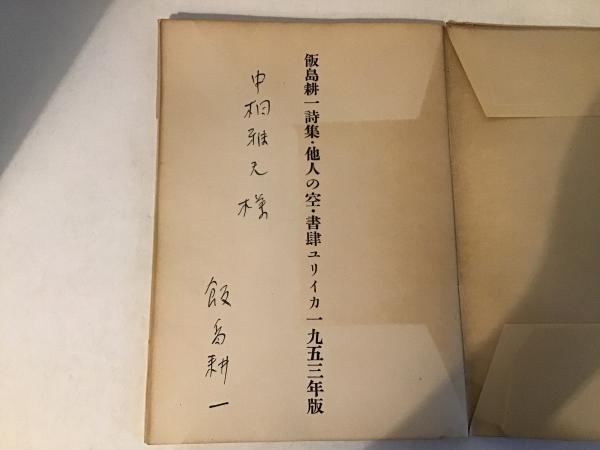 飯島耕一詩集・他人の空・書肆ユリイカ一九五三年版
中桐雅夫様
飯島耕一